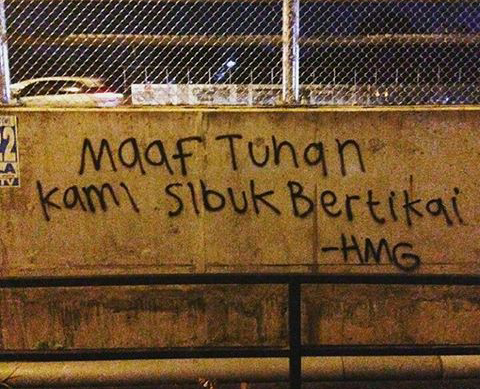 Maaf Tuhan
kami sibuk Bertikai
-HMG